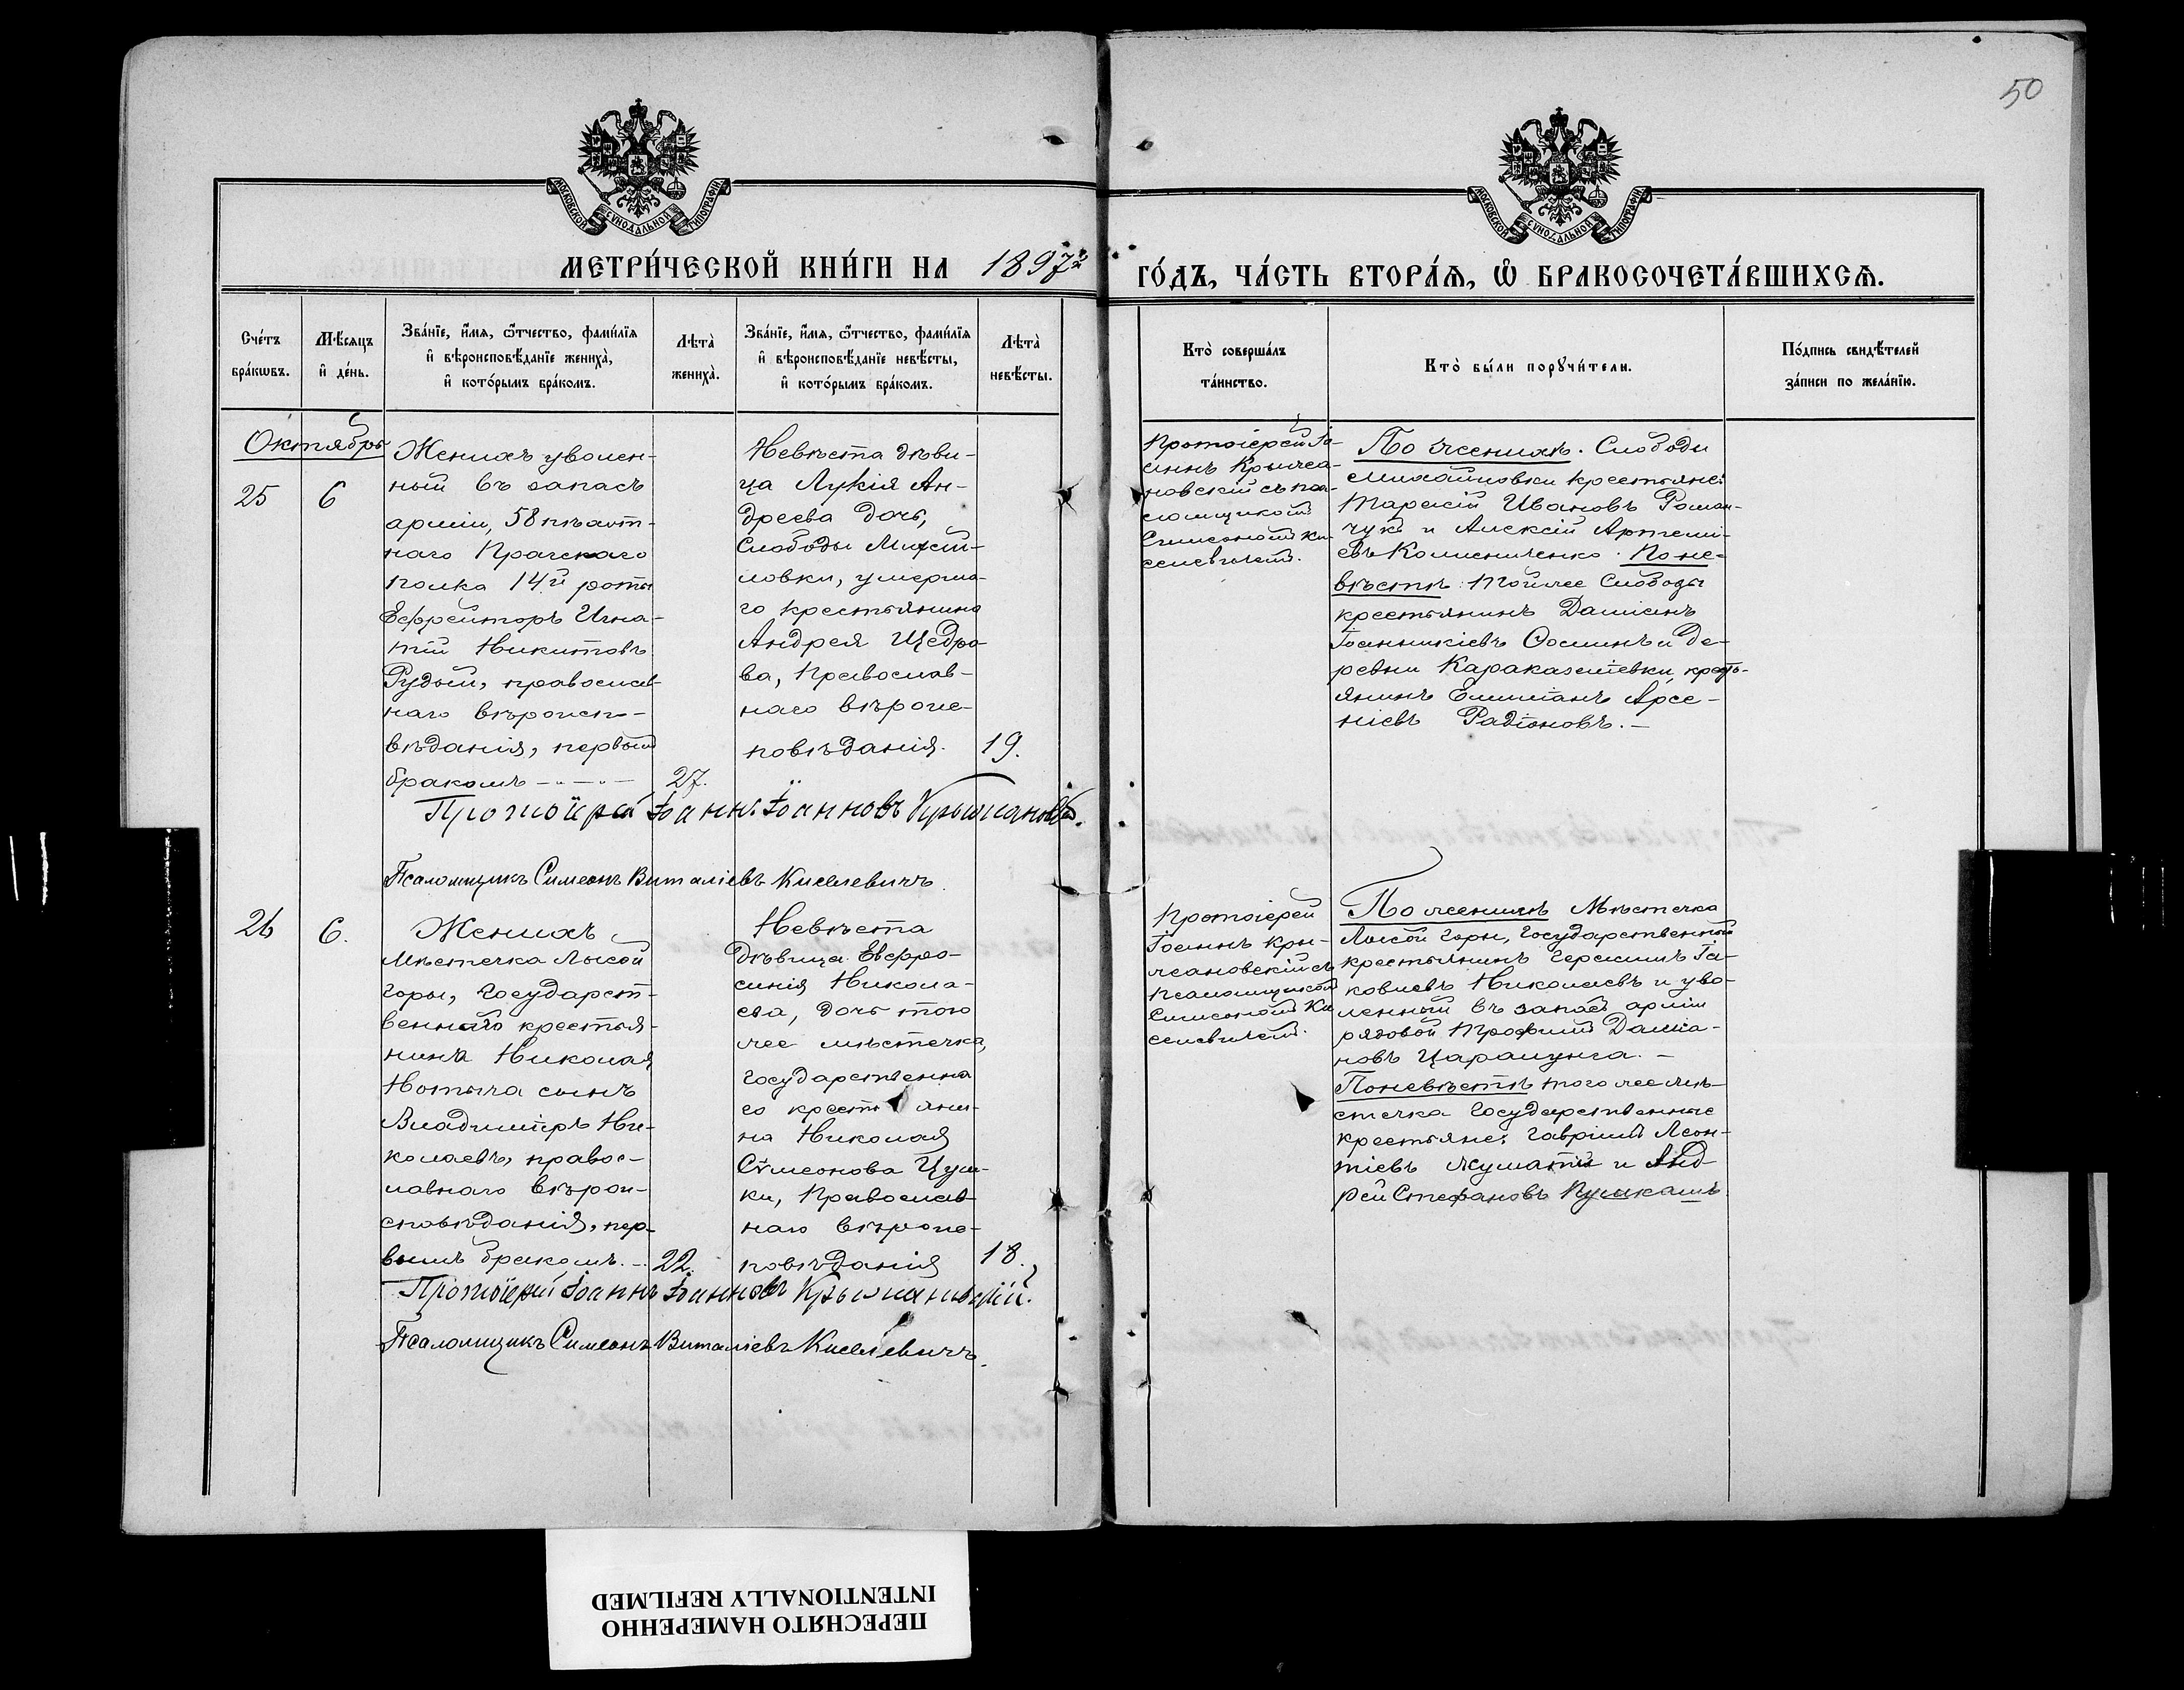 50
МОСКОВСКОЙ СѴНОДАЛЬНОЙ ТИПОГРАФІИ
МОСКОВСКОЙ СѴНОДАЛЬНОЙ ТИПОГРАФІИ
МЕТРИ́ЧЕСКОЙ КНИ́ГИ НА 1897й
ГО́ДЪ, ЧА́СТЬ ВТОРА́Ѧ, Ѡ҆ БРАКОСОЧЕТА́ВШИХСѦ.
Сче́тъ
бра́кѡвъ.
Мѣ́сяцъ
и҆ де́нь.
Зва́нїе, и҆́мѧ, ѻ҆́тчество, фами́лїѧ
и҆ вѣроисповѣ́данїе жениха̀,
и҆ кото́рымъ бра́комъ.
Лѣта̀
жениха̀.
Зва́нїе, и҆́мѧ, ѻ҆́тчество, фами́лїѧ
и҆ вѣроисповѣ́данїе невѣ́сты,
и҆ кото́рымъ бра́комъ.
Лѣта̀
невѣ́сты.
Кто̀ соверша́лъ
та́инство.
Кто̀ бы́ли порꙋчи́тели.
По́дпись свидѣ́телей
за́писи по жела́нїю.
Октябрь
25
6
Женихъ уволен-
ный въ запасъ
арміи, 58 пѣхот-
наго Прагскаго
полка 14й роты
Ефрейторъ Игна-
тій Никитовъ
Рудый, православ-
наго вѣроиспо-
вѣданія, первымъ
бракомъ
27.
Невѣста дѣви-
ца Лукія Ан-
дреева дочь,
Слободы Михай-
ловки, умерша-
го крестьянина
Андрея Щедро-
ва, Православ-
наго вѣроис-
повѣданія.
19.
Протоіерей Іо-
аннъ Крыжа-
новскій съ пса-
ломщикомъ
Симеономъ Ки-
селевичемъ.
По женихѣ. Слободы
Михайловки крестьяне:
Тарасій Ивановъ Роман-
чукъ и Алексій Артемі-
евъ Колисниченко. По не-
вѣстѣ: той же Слободы
крестьянинъ Даміанъ
Іоанникіевъ Осминъ и де-
ревни Караказеліевки, кресть-
янинъ Емиліанъ Арсе-
ніевъ Радіоновъ.
Протоіерей Іоаннъ Іоанновъ Крыжановскій.
Псаломщикъ Симеонъ Виталіевъ Киселевичъ.
26
6.
Женихъ
Мѣстечка Лысой
Горы, Государст-
веннаго крестья-
нина Николая
Нотыча сынъ
Владиміръ Ни-
колаевъ, правос-
лавнаго вѣрои-
сповѣданія, пер-
вымъ бракомъ.
22.
Невѣста
Дѣвица Евфро-
синія Никола-
ева, дочь того
же мѣстечка,
Государственна
го крестьяни-
на Николая
Сѵмеонова Цуш-
ки, Православ-
наго вѣроис-
повѣданія
18.
Протоіерей
Іоаннъ Кры-
жановскій съ
псаломщикомъ
Симеономъ Ки-
селевичемъ.
По женихѣ Мѣстечка
Лысой Горы, Государственный
крестьянинъ Герасимъ Іа-
ковлевъ Николаевъ и уво-
ленный въ запасъ арміи
рядовой Трофимъ Даміа-
новъ Царалунга.
По невѣстѣ того же мѣ-
стечка Государственные
крестьяне: Гавріилъ Леон-
тіевъ Жуматій и Анд-
рей Стефановъ Пушкашъ.
Протоіерей Іоаннъ Іоанновъ Крыжановскій.
Псаломщикъ Симеонъ Виталіевъ Киселевичъ.
ПЕРЕСНЯТО НАМЕРЕННО
INTENTIONALLY REFILMED